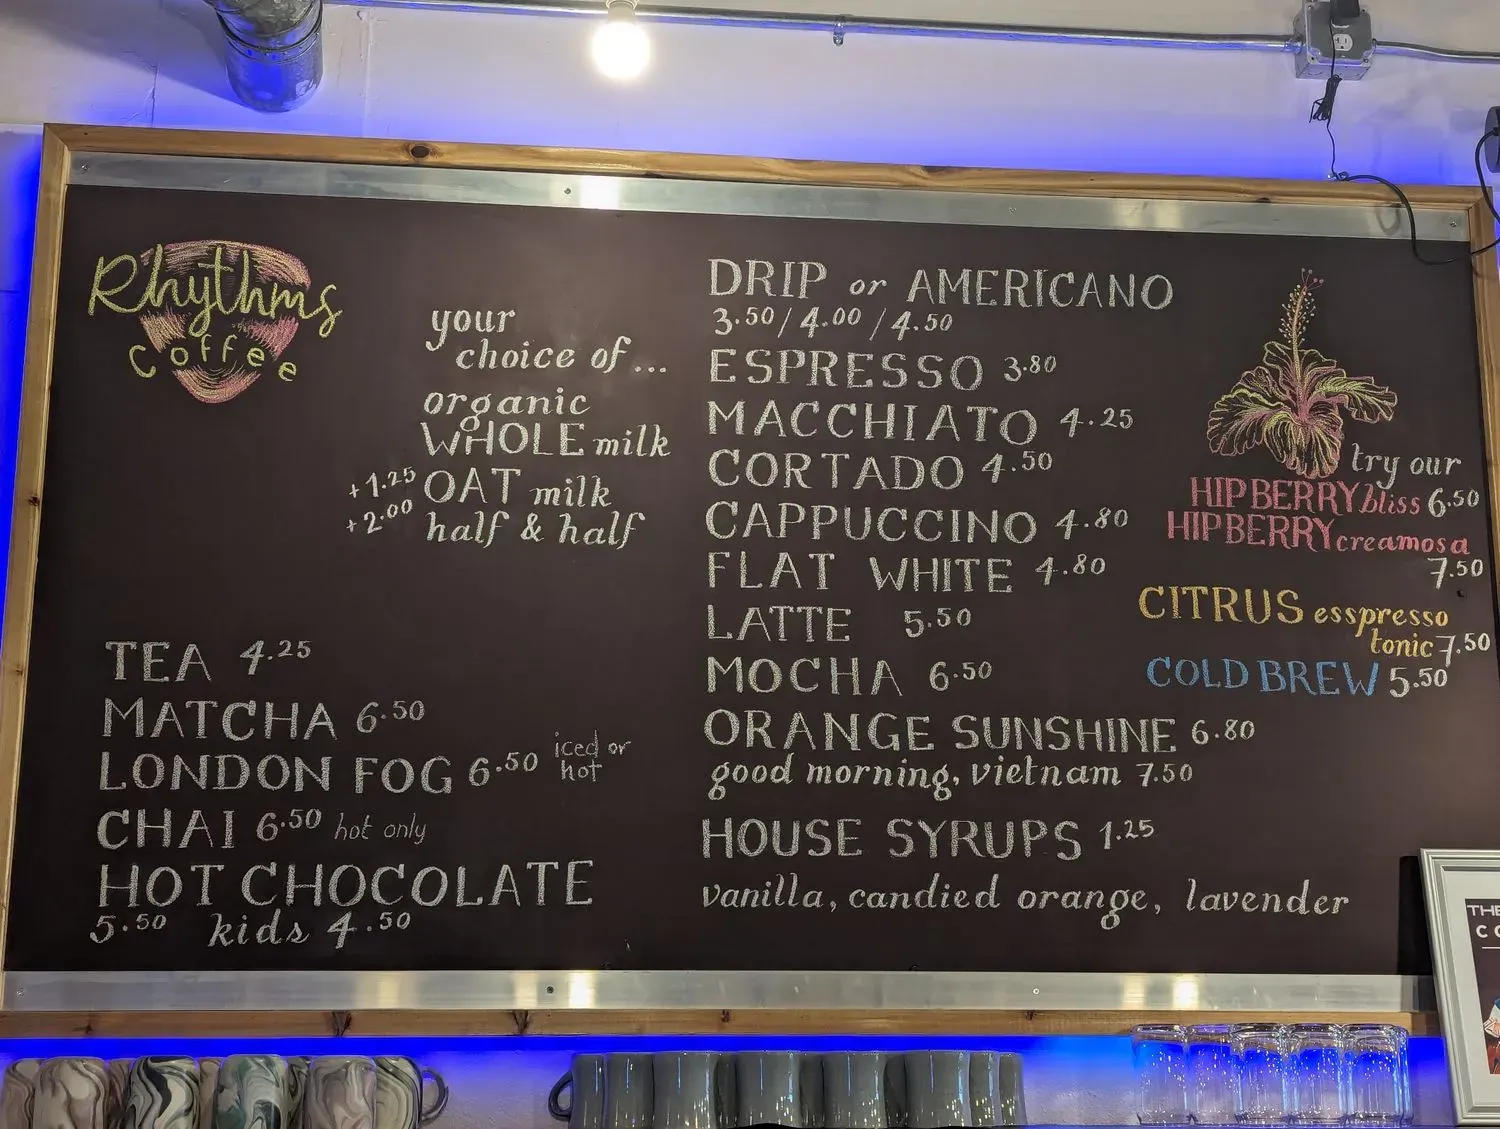 Rhythms
Coffee
your
choice of...
organic
WHOLE milk
+1.25 OAT milk
+2.00 half & half
TEA 4.25
MATCHA 6.50
LONDON FOG 6.50 iced or
hot
CHAI 6.50 hot only
HOT CHOCOLATE
5.50 kids 4.50
DRIP or AMERICANO
3.50/4.00/4.50
ESPRESSO 3.80
MACCHIATO 4.25
CORTADO 4.50
CAPPUCCINO 4.80
FLAT WHITE 4.80
LATTE 5.50
MOCHA 6.50
ORANGE SUNSHINE 6.80
good morning, vietnam 7.50
HOUSE SYRUPS 1.25
vanilla, candied orange, lavender
try our
HIPBERRY bliss 6.50
HIPBERRY creamosa
7.50
CITRUS esspresso
tonic 7.50
COLD BREW 5.50